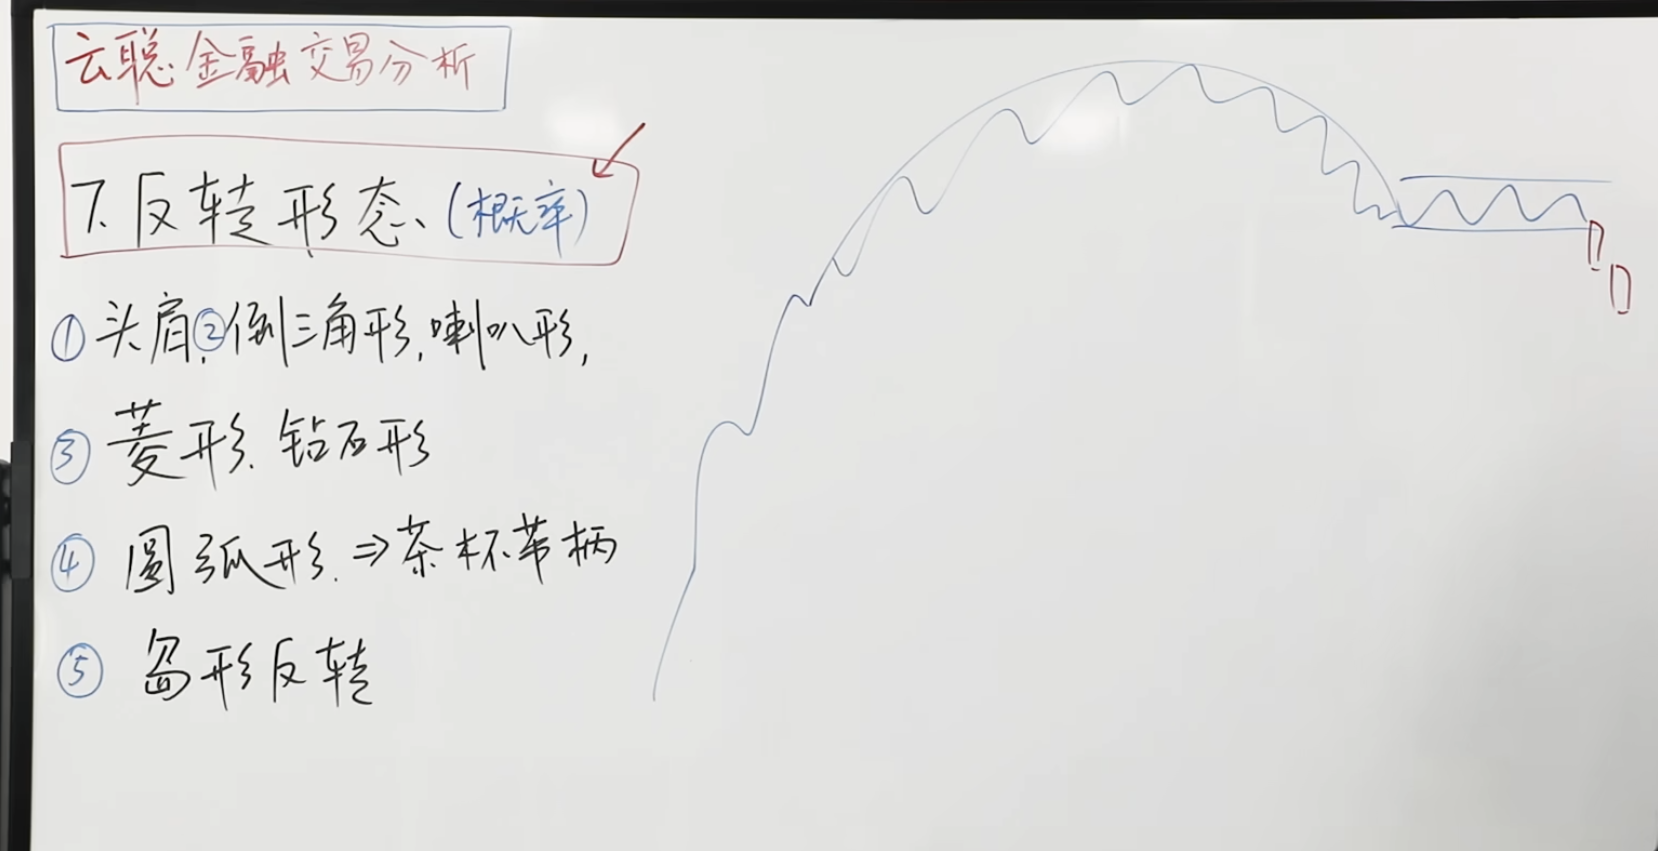 云聪金融交易分析
7.反转形态、(概率)
①头肩,②倒三角形,喇叭形,
③菱形.钻石形
④圆弧形.⇒茶杯带柄
⑤岛形反转